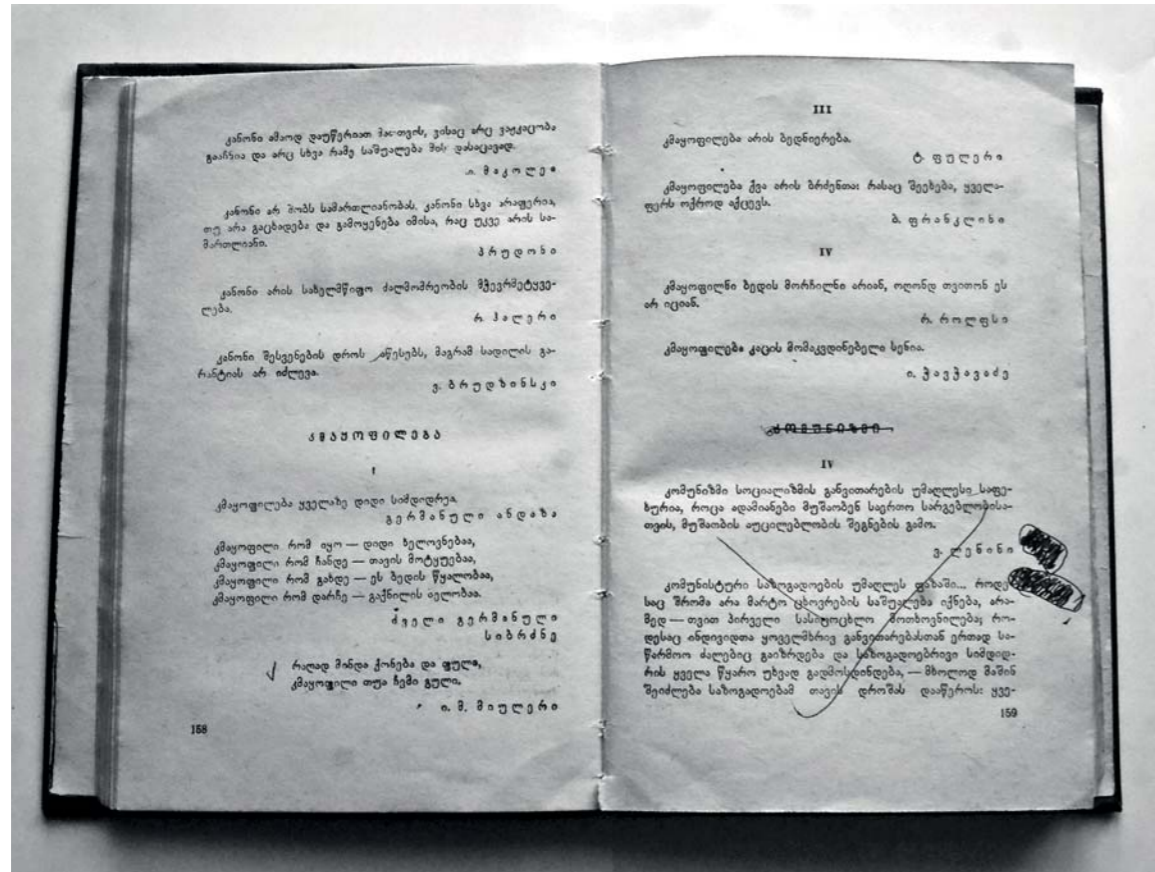 კანონი ამაოდ დაუწერიათ მათთვის, ვისაც არც ვაჟკაცობა
გააჩნია და არც სხვა რამე საშუალება მის დასაცავად.
მაკოლეი
კანონი არ შობს სამართლიანობას. კანონი სხვა არაფერია,
თუ არა გაცხადება და გამოყენება იმისა, რაც უკვე არის სა-
მართლიანი.
პრუდონი
კანონი არის სახელმწიფო ძალმომრეობის მჭევრმეტყვე-
ლება.
რ. ჰალერი
კანონი შესვენების დროს აწესებს, მაგრამ სადილის გა-
რანტიას არ იძლევა.
ვ. ბრუდზინსკი
კმაყოფილება
I
კმაყოფილება ყველაზე დიდი სიმდიდრეა.
გერმანული ანდაზა
კმაყოფილი რომ იყო — დიდი ხელოვნებაა,
კმაყოფილი რომ ჩანდე — თავის მოტყუებაა,
კმაყოფილი რომ გახდე — ეს ბედის წყალობაა,
კმაყოფილი რომ დარჩე — გაქნილის ხელობაა.
ძველი გერმანული
სიბრძნე
რაღად მინდა ქონება და ფული,
კმაყოფილი თუა ჩემი გული.
ი. მ. მიულერი
158
III
კმაყოფილება არის ბედნიერება.
ტ. ფულერი
კმაყოფილება ქვა არის ბრძენთა: რასაც შეეხება, ყველა-
ფერს ოქროდ აქცევს.
ბ. ფრანკლინი
IV
კმაყოფილნი ბედის მორჩილნი არიან, ოღონდ თვითონ ეს
არ იციან.
რ. როლფსი
კმაყოფილება კაცის მომაკვდინებელი სენია.
ი. ჭავჭავაძე
კომუნიზმი
IV
კომუნიზმი სოციალიზმის განვითარების უმაღლესი საფე-
ხურია, როცა ადამიანები მუშაობენ საერთო სარგებლობისა-
თვის, მუშაობის აუცილებლობის შეგნების გამო.
ვ. ლენინი
კომუნისტური საზოგადოების უმაღლეს ფაზაში... როდე
საც შრომა არა მარტო ცხოვრების საშუალება იქნება, არა-
მედ — თვით პირველი სასიცოცხლო მოთხოვნილება; რო-
დესაც ინდივიდთა ყოველმხრივ განვითარებასთან ერთად სა-
წარმოო ძალებიც გაიზრდება და საზოგადოებრივი სიმდიდ-
რის ყველა წყარო უხვად გადმოსდინდება, — მხოლოდ მაშინ
შეიძლება საზოგადოებამ თავის დროშას დააწეროს: ყვე-
159